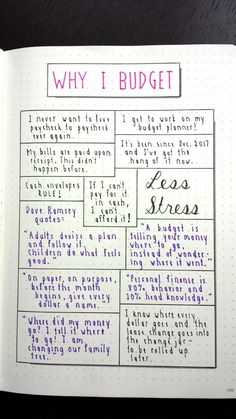 WHY I BUDGET
I never want to live
paycheck to paycheck
ever again.
I get to work on my
budget planner!
My bills are paid upon
receipt. This didn't
happen before.
It's been since Dec. 2017
and I've got the
hang of it now.
Cash envelopes
RULE!
If I can't
pay for it
in cash,
I can't
afford it!
Less
Stress
Dave Ramsey
quotes:
"Adults devise a plan
and follow it.
Children do what feels
good."
"A budget is
telling your money
where to go,
instead of wonder-
ing where it went."
"On paper, on purpose,
before the month
begins, give every
dollar a name."
"Personal finance is
80% behavior and
20% head knowledge."
"Where did my money
go? I tell it where
to go! I am
changing our family
tree."
I know where every
dollar goes and the
loose change goes into
the change jar-
to be rolled up
later.